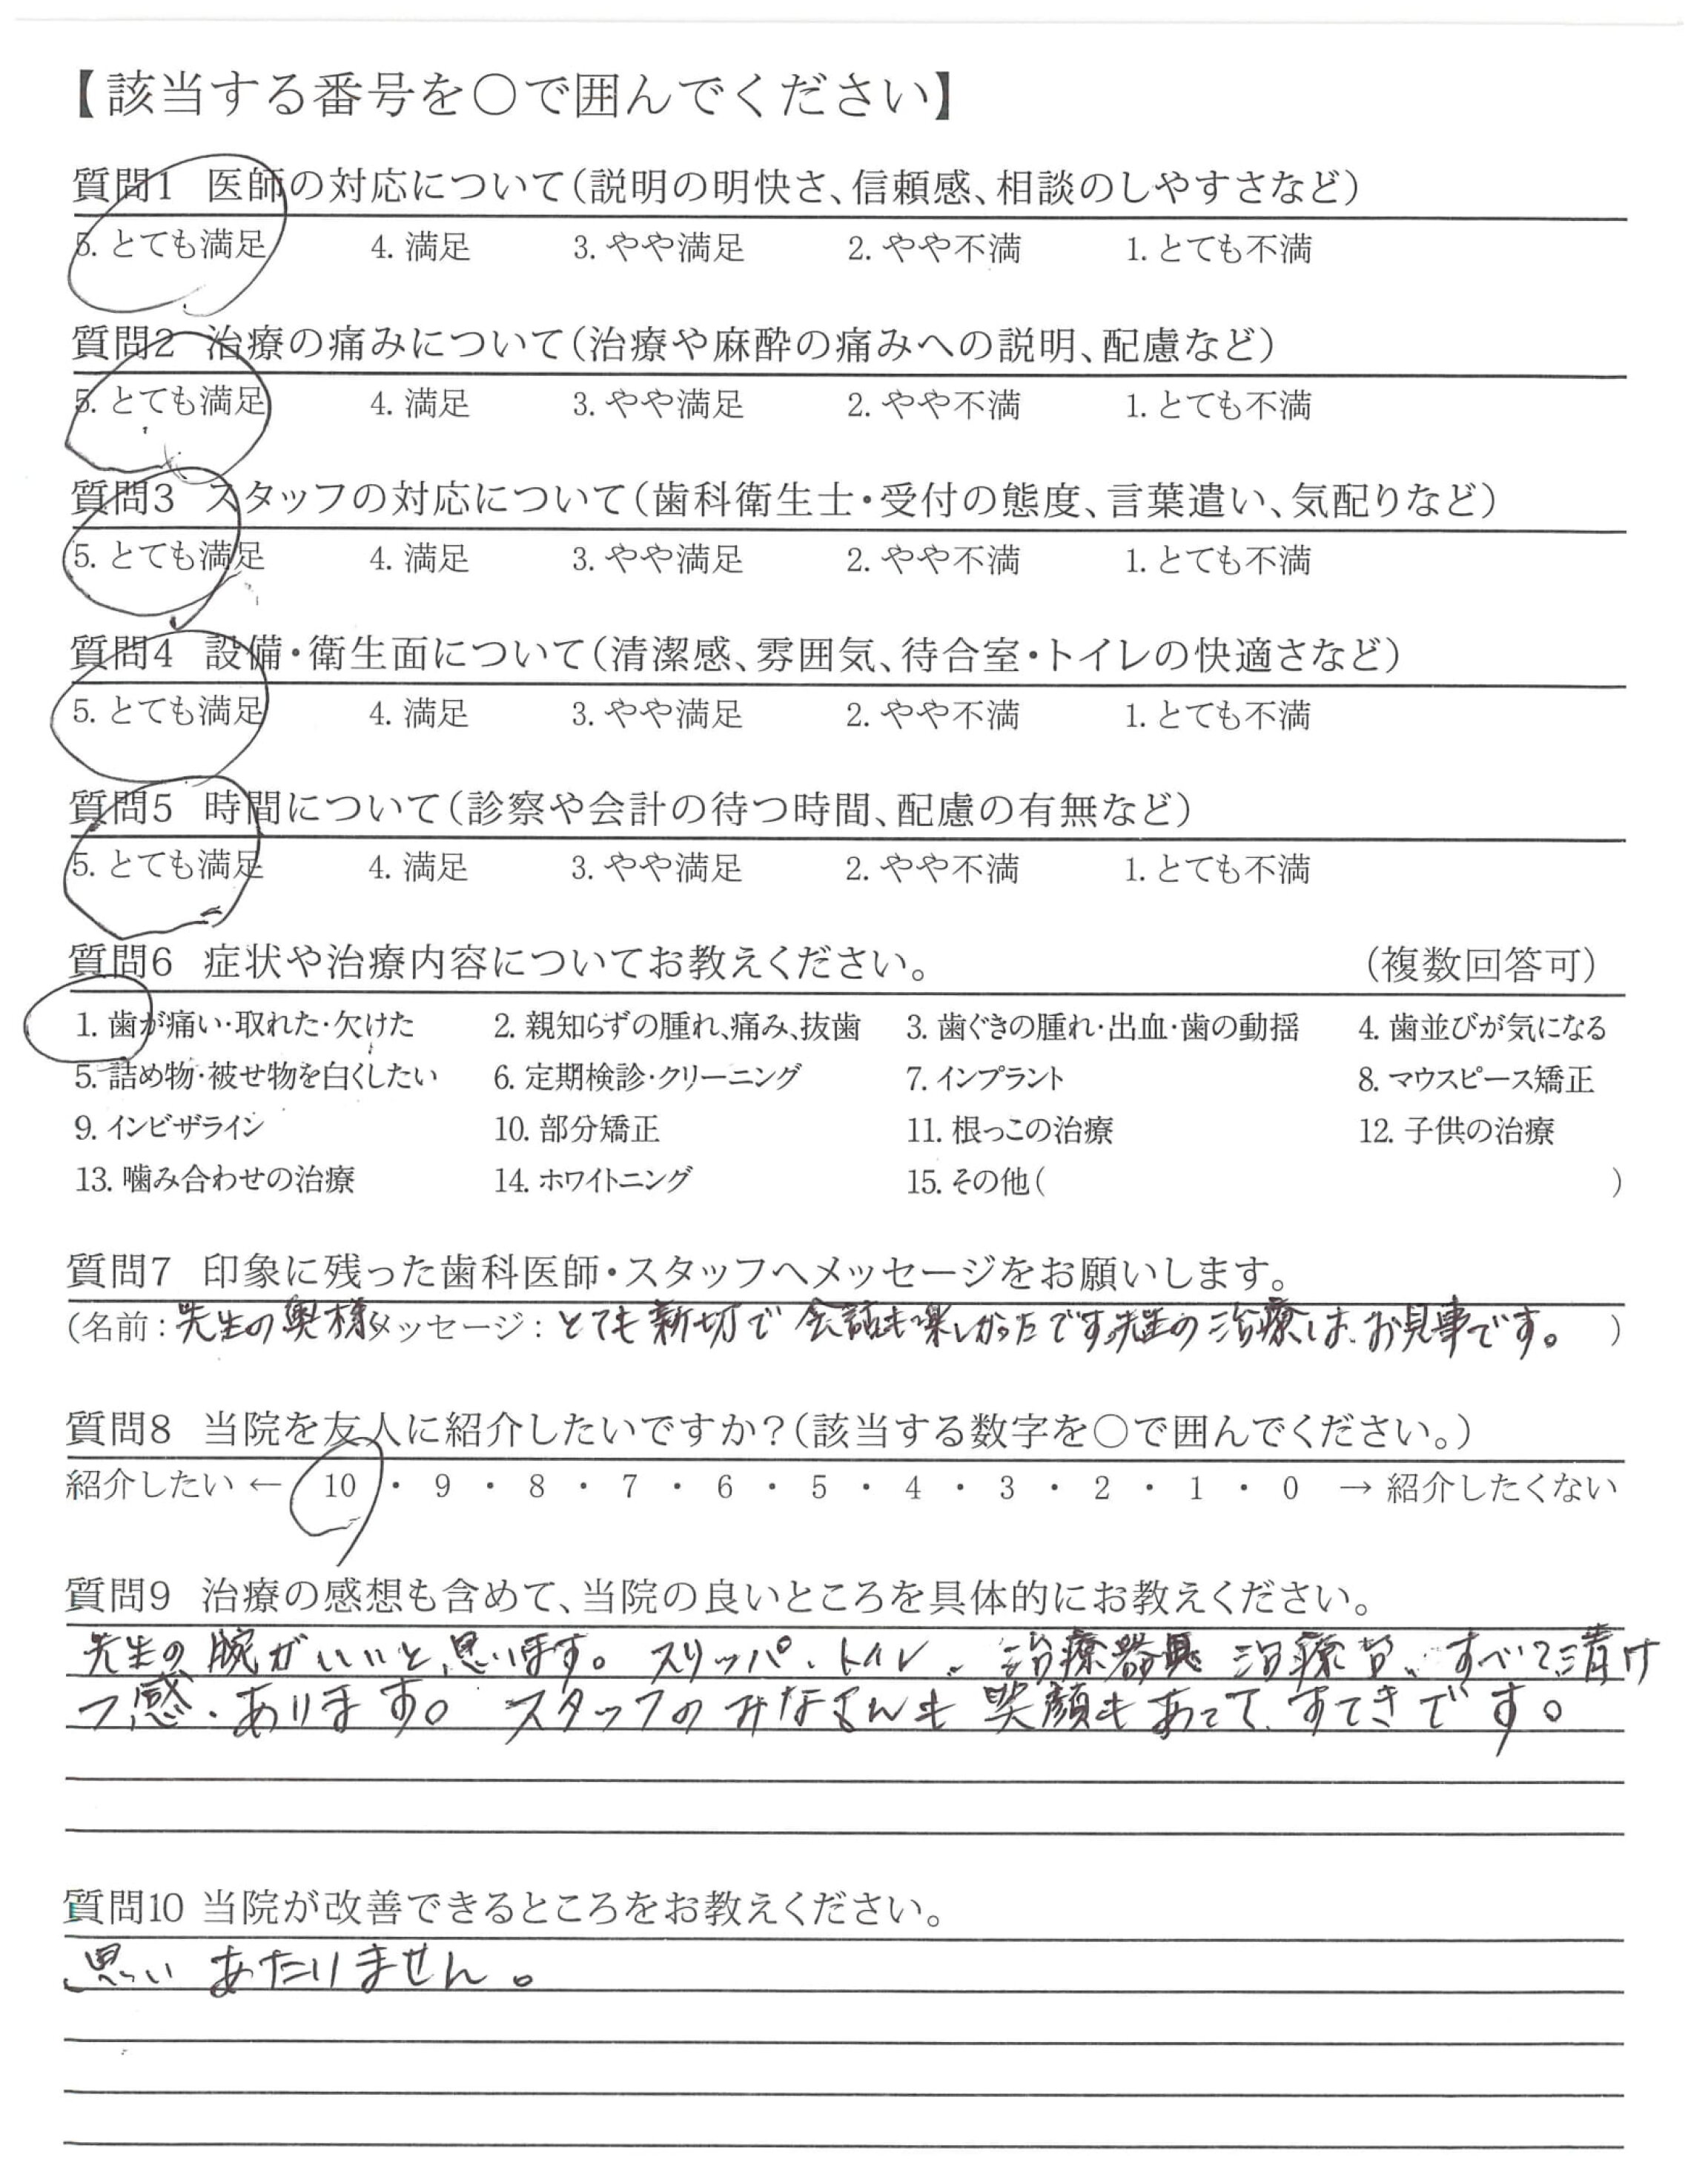 【該当する番号を○で囲んでください】
質問1 医師の対応について(説明の明快さ、信頼感、相談のしやすさなど)
5. とても満足 4. 満足 3. やや満足 2. やや不満 1. とても不満
質問2 治療の痛みについて(治療や麻酔の痛みへの説明、配慮など)
5. とても満足 4. 満足 3. やや満足 2. やや不満 1. とても不満
質問3 スタッフの対応について(歯科衛生士・受付の態度、言葉遣い、気配りなど)
5. とても満足 4. 満足 3. やや満足 2. やや不満 1. とても不満
質問4 設備・衛生面について(清潔感、雰囲気、待合室・トイレの快適さなど)
5. とても満足 4. 満足 3. やや満足 2. やや不満 1. とても不満
質問5 時間について(診察や会計の待つ時間、配慮の有無など)
5. とても満足 4. 満足 3. やや満足 2. やや不満 1. とても不満
質問6 症状や治療内容についてお教えください。 (複数回答可)
1. 歯が痛い・取れた・欠けた 2. 親知らずの腫れ、痛み、抜歯 3. 歯ぐきの腫れ・出血・歯の動揺 4. 歯並びが気になる
5. 詰め物・被せ物を白くしたい 6. 定期検診・クリーニング 7. インプラント 8. マウスピース矯正
9. インビザライン 10. 部分矯正 11. 根っこの治療 12. 子供の治療
13. 噛み合わせの治療 14. ホワイトニング 15. その他( )
質問7 印象に残った歯科医師・スタッフへメッセージをお願いします。
(名前：先生の奥様 メッセージ：とても新切で 会話も楽しかったです。先生の治療は、お見事です。 )
質問8 当院を友人に紹介したいですか？(該当する数字を○で囲んでください。)
紹介したい ← 10 ・ 9 ・ 8 ・ 7 ・ 6 ・ 5 ・ 4 ・ 3 ・ 2 ・ 1 ・ 0 → 紹介したくない
質問9 治療の感想も含めて、当院の良いところを具体的にお教えください。
先生の腕がいいと思います。スリッパ、トイレ、治療器具 すべて清け
つ感、あります。スタッフのみなさんも 笑顔もあって、すてきです。
質問10 当院が改善できるところをお教えください。
思い あたりません。